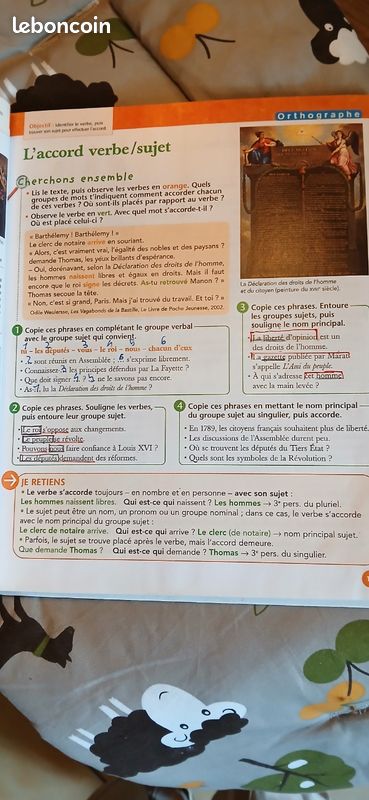 leboncoin
Objectif : Identifier le verbe, puis
trouver son sujet pour effectuer l'accord.
Orthographe
L'accord verbe/sujet
Cherchons ensemble
• Lis le texte, puis observe les verbes en orange. Quels
groupes de mots t'indiquent comment accorder chacun
de ces verbes ? Où sont-ils placés par rapport au verbe ?
• Observe le verbe en vert. Avec quel mot s'accorde-t-il ?
Où est placé celui-ci ?
« Barthélemy ! Barthélemy ! »
Le clerc de notaire arrive en souriant.
« Alors, c'est vraiment vrai, l'égalité des nobles et des paysans ?
demande Thomas, les yeux brillants d'espérance.
– Oui, dorénavant, selon la Déclaration des droits de l'homme,
les hommes naissent libres et égaux en droits. Mais il faut
encore que le roi signe les décrets. As-tu retrouvé Manon ? »
Thomas secoua la tête.
« Non, c'est si grand, Paris. Mais j'ai trouvé du travail. Et toi ? »
Odile Weulersse, Les Vagabonds de la Bastille, Le Livre de Poche Jeunesse, 2002.
La Déclaration des droits de l'homme
et du citoyen (peinture du XVIIIe siècle).
1 Copie ces phrases en complétant le groupe verbal
avec le groupe sujet qui convient.
1 2 3 4 5 6
tu – les députés – vous – le roi – nous – chacun d'eux
• 2 sont réunis en Assemblée : 6 s'exprime librement.
• Connaissez-3 les principes défendus par La Fayette ?
• Que doit signer 4 ? 5 ne le savons pas encore.
• As-1 lu la Déclaration des droits de l'homme ?
2 Copie ces phrases. Souligne les verbes,
puis entoure leur groupe sujet.
• Le roi s'oppose aux changements.
• Le peuple se révolte.
• Pouvons-nous faire confiance à Louis XVI ?
• Les députés demandent des réformes.
3 Copie ces phrases. Entoure
les groupes sujets, puis
souligne le nom principal.
• La liberté d'opinion est un
des droits de l'homme.
• La gazette publiée par Marat
s'appelle L'Ami du peuple.
• À qui s'adresse cet homme
avec la main levée ?
4 Copie ces phrases en mettant le nom principal
du groupe sujet au singulier, puis accorde.
• En 1789, les citoyens français souhaitent plus de liberté.
• Les discussions de l'Assemblée durent peu.
• Où se trouvent les députés du Tiers État ?
• Quels sont les symboles de la Révolution ?
JE RETIENS
• Le verbe s'accorde toujours – en nombre et en personne – avec son sujet :
Les hommes naissent libres. Qui est-ce qui naissent ? Les hommes → 3e pers. du pluriel.
• Le sujet peut être un nom, un pronom ou un groupe nominal ; dans ce cas, le verbe s'accorde
avec le nom principal du groupe sujet :
Le clerc de notaire arrive. Qui est-ce qui arrive ? Le clerc (de notaire) → nom principal sujet.
• Parfois, le sujet se trouve placé après le verbe, mais l'accord demeure.
Que demande Thomas ? Qui est-ce qui demande ? Thomas → 3e pers. du singulier.